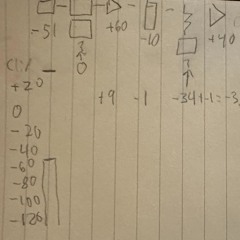 -51 +60 -10 +40
0
+20
+9 -1 -34+-1=-3
0
-20
-40
-60
-80
-100
-120